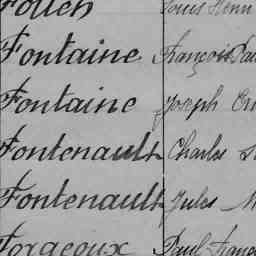 Follen Louis Henri
Fontaine François Pau
Fontaine Joseph
Fontenault Charles
Fontenault Jules
Forgeoux Paul Franç